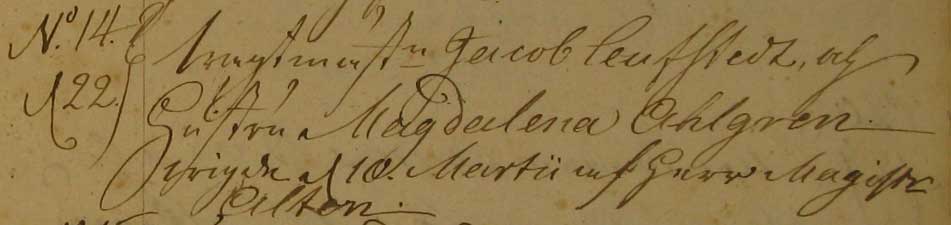 No. 14. Wagtmästn Jacob Leufstedt, och
(22.) Hustru Magdalena Ahlgren.
vigde d. 10. Martii af Herr Magistr
Alton.